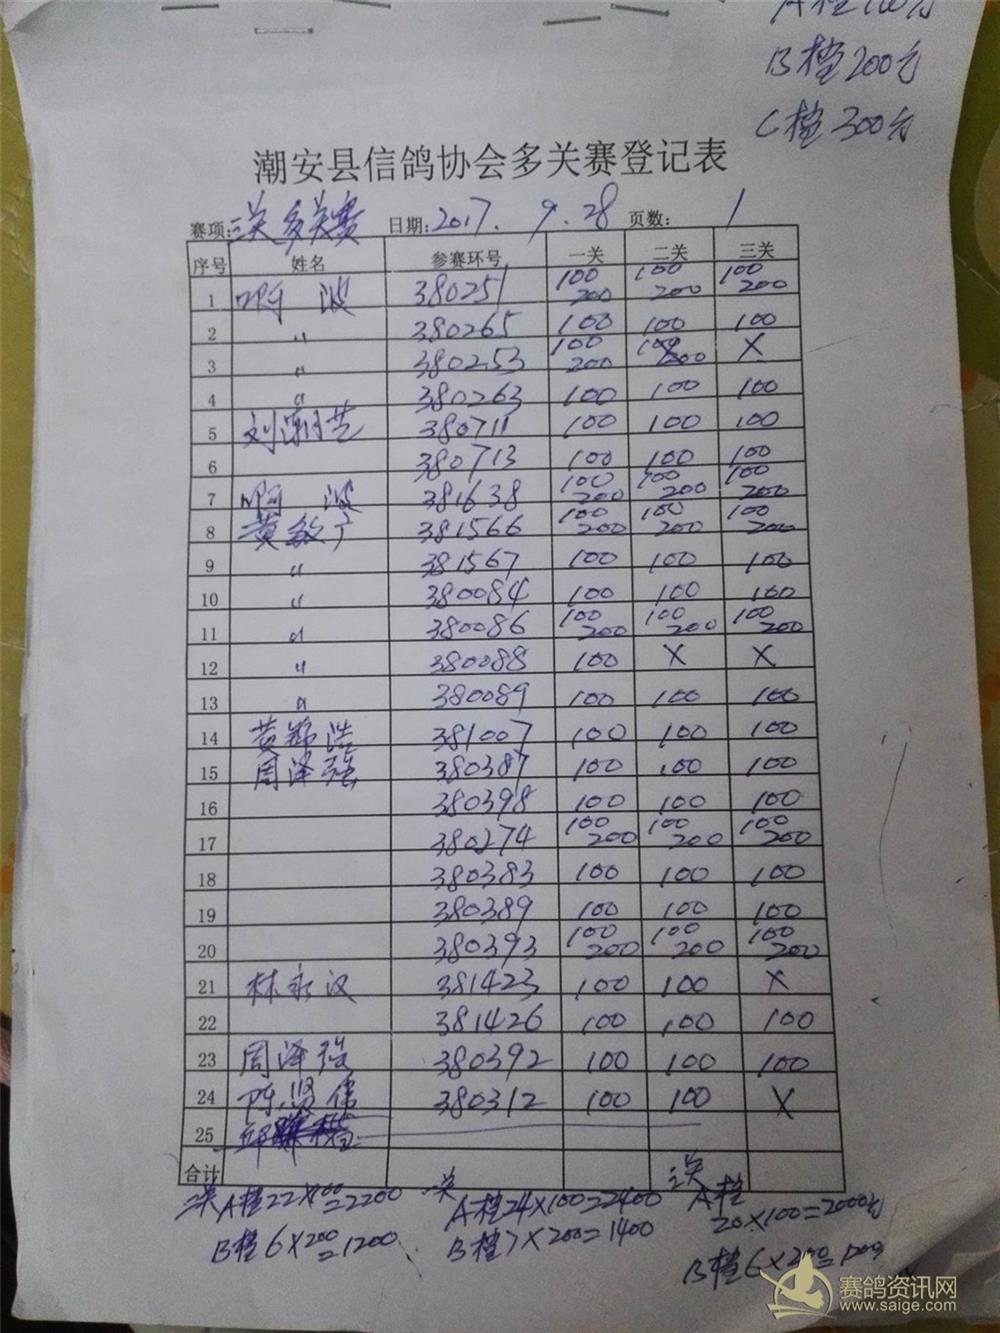 A档100台
B档200台
C档300台
潮安县信鸽协会多关赛登记表
赛项:三关多关赛 日期:2017.9.28 页数: 1
序号 姓名 参赛环号 一关 二关 三关
1 啊 波 380251 100 200 100 200 100 200
2 〃 380265 100 100 100
3 〃 380253 100 200 100 200 X X
4 〃 380263 100 100 100
5 刘潮艺 380711 100 100 100
6 380713 100 100 100
7 啊 波 381638 100 200 100 200 100 200
8 黄敏广 381566 100 200 100 200 100 200
9 〃 381567 100 100 100
10 〃 380084 100 100 100
11 〃 380086 100 200 100 200 100 200
12 〃 380088 100 X X
13 〃 380089 100 100 100
14 黄锦浩 381007 100 100 100
15 周泽强 380387 100 100 100
16 380398 100 100 100
17 380274 100 200 100 200 100 200
18 380383 100 100 100
19 380389 100 100 100
20 380393 100 200 100 200 100 200
21 林永汉 381423 100 100 X
22 381426 100 100 100
23 周泽强 380392 100 100 100
24 陈贤伟 380312 100 100 X
25 邱
合计
二关 A档22X100=2200 一关 A档24X100=2400 三关 A档20X100=2000台
B档6X200=1200 B档7X200=1400 B档6X200=1200
赛鸽资讯网
www.saige.com